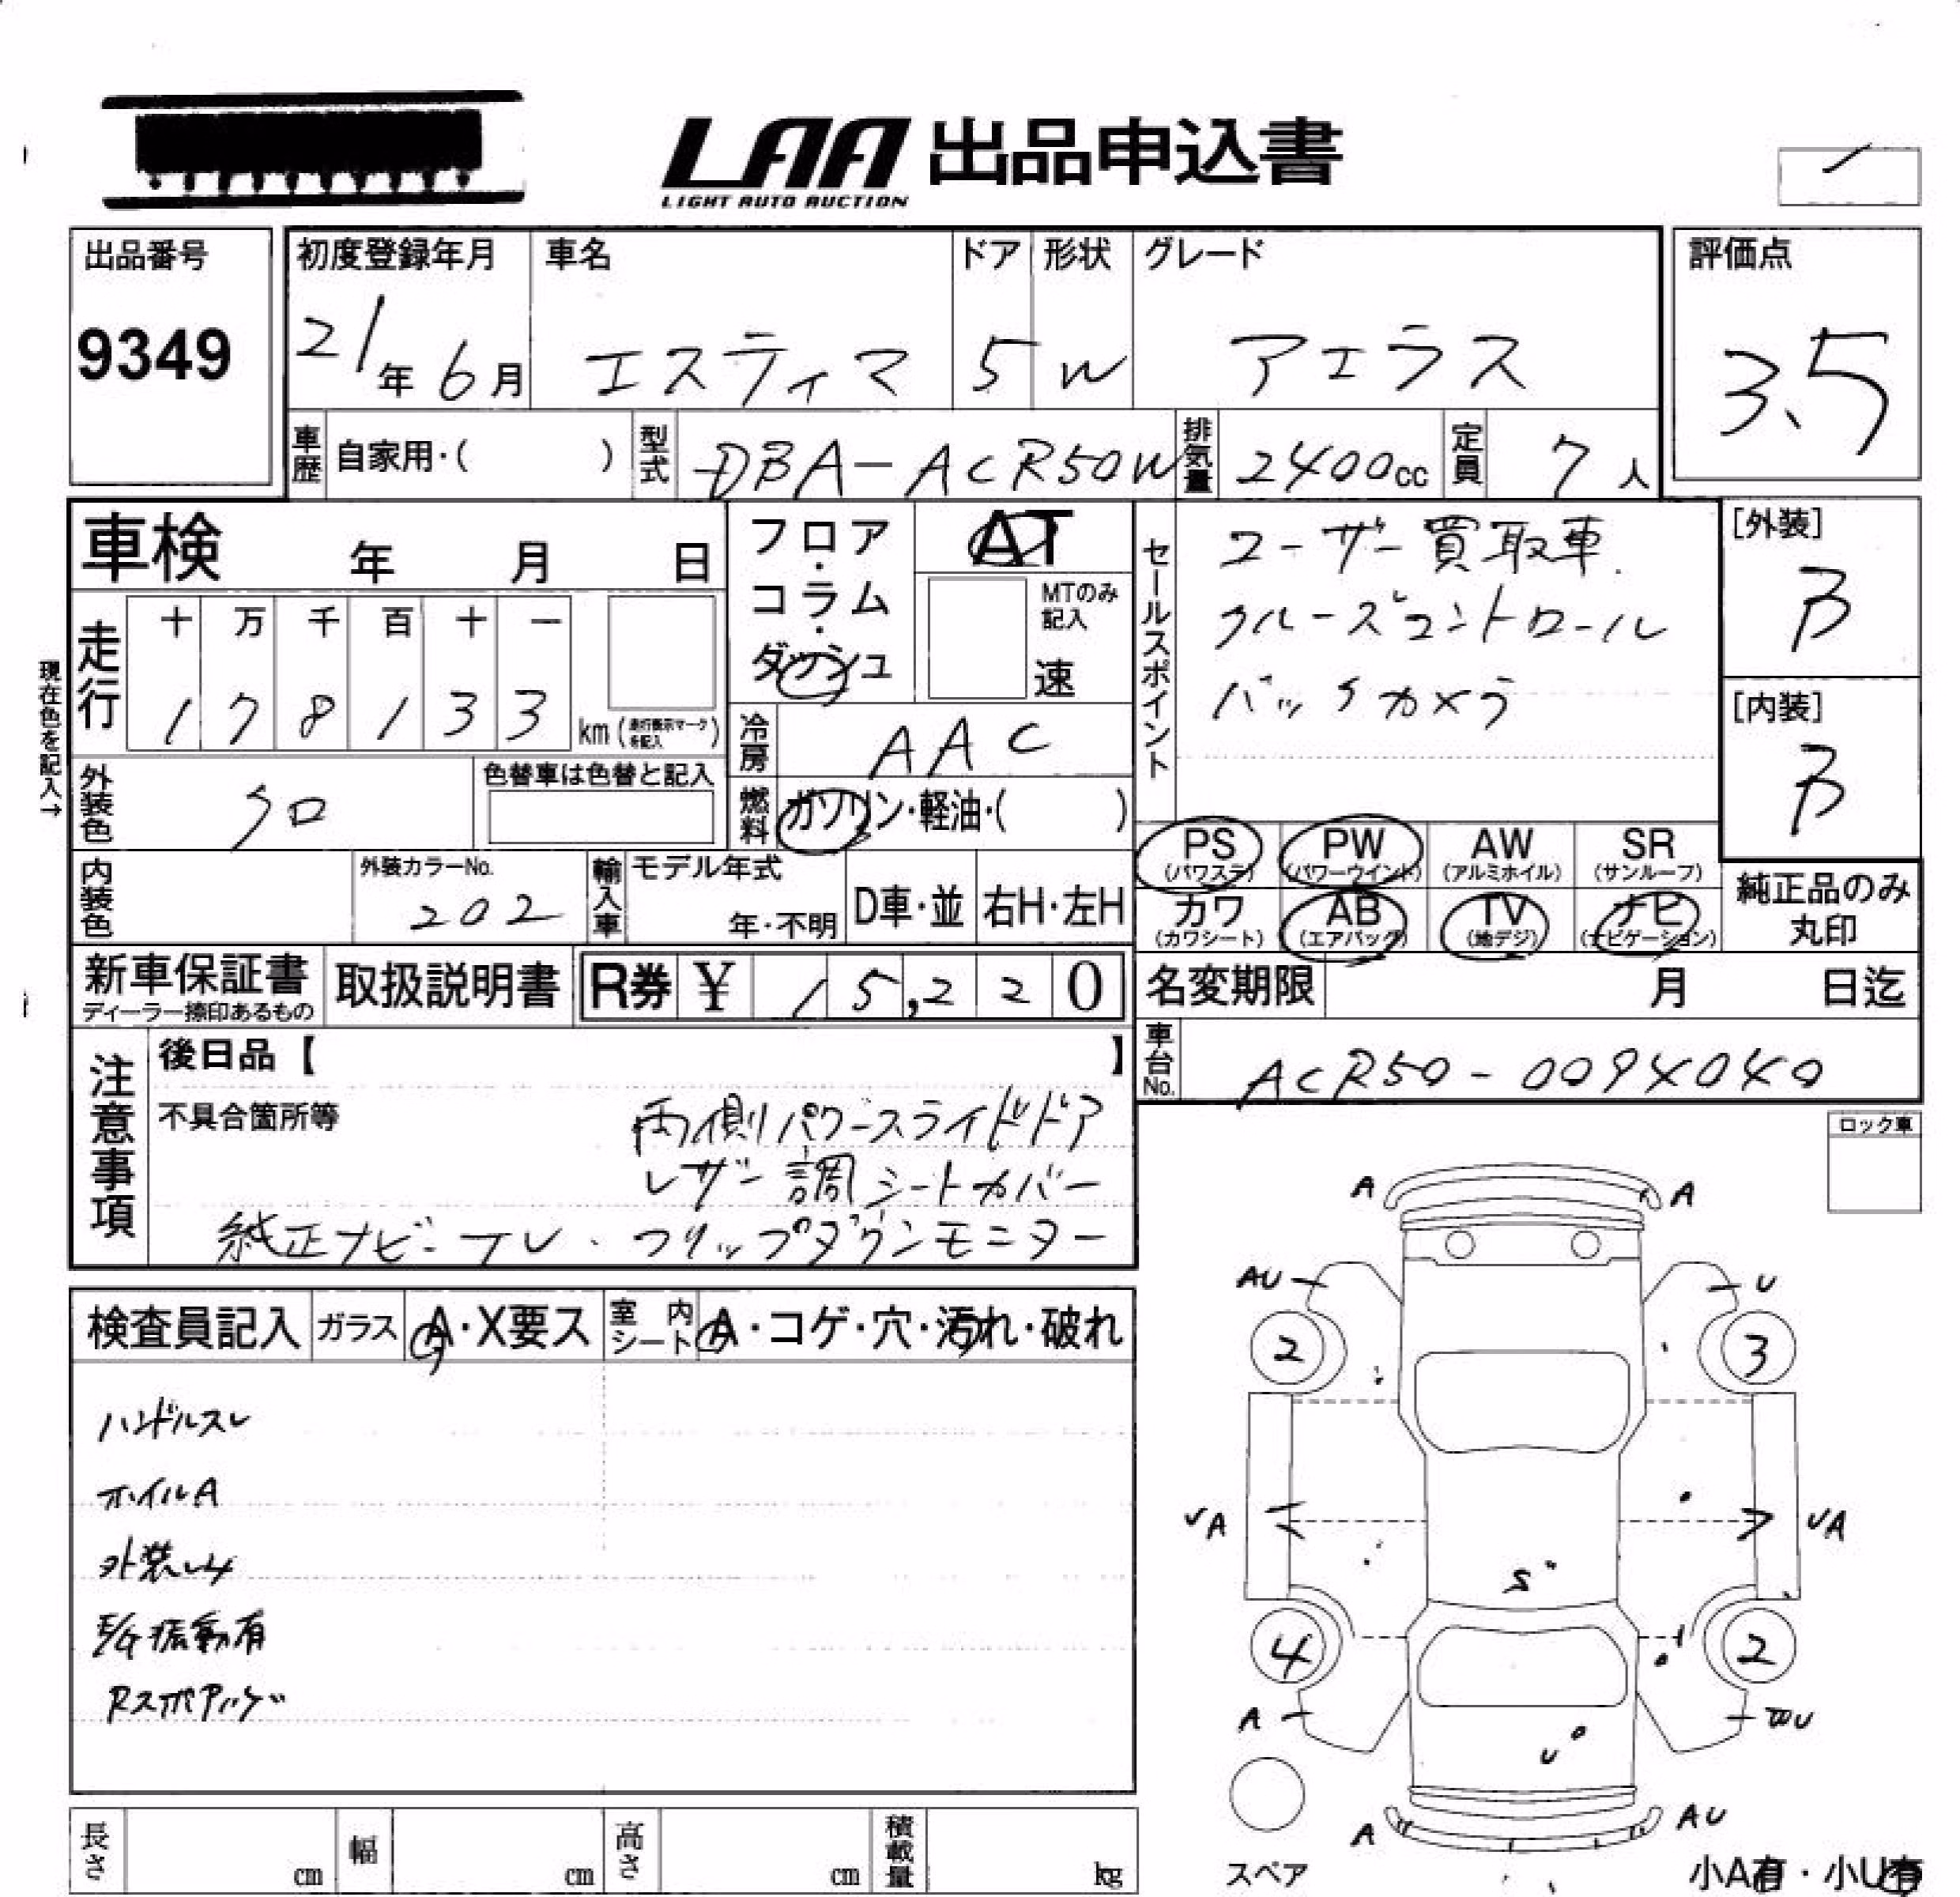 LAA 出品申込書
LIGHT AUTO AUCTION
出品番号
9349
初度登録年月
21年6月
車名
エスティマ
ドア
5
形状
W
グレード
アエラス
評価点
3.5
車歴 自家用・( )
型式 DBA-ACR50W
排気量 2400cc
定員 7人
車検 年 月 日
フロア・コラム・ダッシュ
AT
MTのみ記入
速
セールスポイント
ユーザー買取車.
クルーズコントロール
バックカメラ
[外装]
B
[内装]
B
現在色を記入→
走行
十 万 千 百 十 一
1 7 8 1 3 3
km(走行表示マークを記入)
冷房 AAC
外装色 クロ
色替車は色替と記入
燃料 ガソリン・軽油・( )
PS (パワステ)
PW (パワーウインド)
AW (アルミホイル)
SR (サンルーフ)
カワ (カワシート)
AB (エアバッグ)
TV (地デジ)
ナビ (ナビゲーション)
純正品のみ
丸印
内装色
外装カラーNo.
202
輸入車
モデル年式
年・不明
D車・並
右H・左H
新車保証書
ディーラー捺印あるもの
取扱説明書
R券 ¥ 15,220
名変期限 月 日迄
車台No. ACR50-0094040
注意事項
後日品【 】
不具合箇所等
両側パワースライドドア
レザー調シートカバー
純正ナビ・TV.フリップダウンモニター
ロック車
検査員記入
ガラス A・X要ス
室内シート A・コゲ・穴・汚れ・破れ
ハンドルスレ
ホイルA
外装シミ
E/G振動有
A A
AU U
2 3
VA VA
S
4 2
A U
U
A AU
スペア
小A有・小U有
長さ cm
幅 cm
高さ cm
積載量 kg